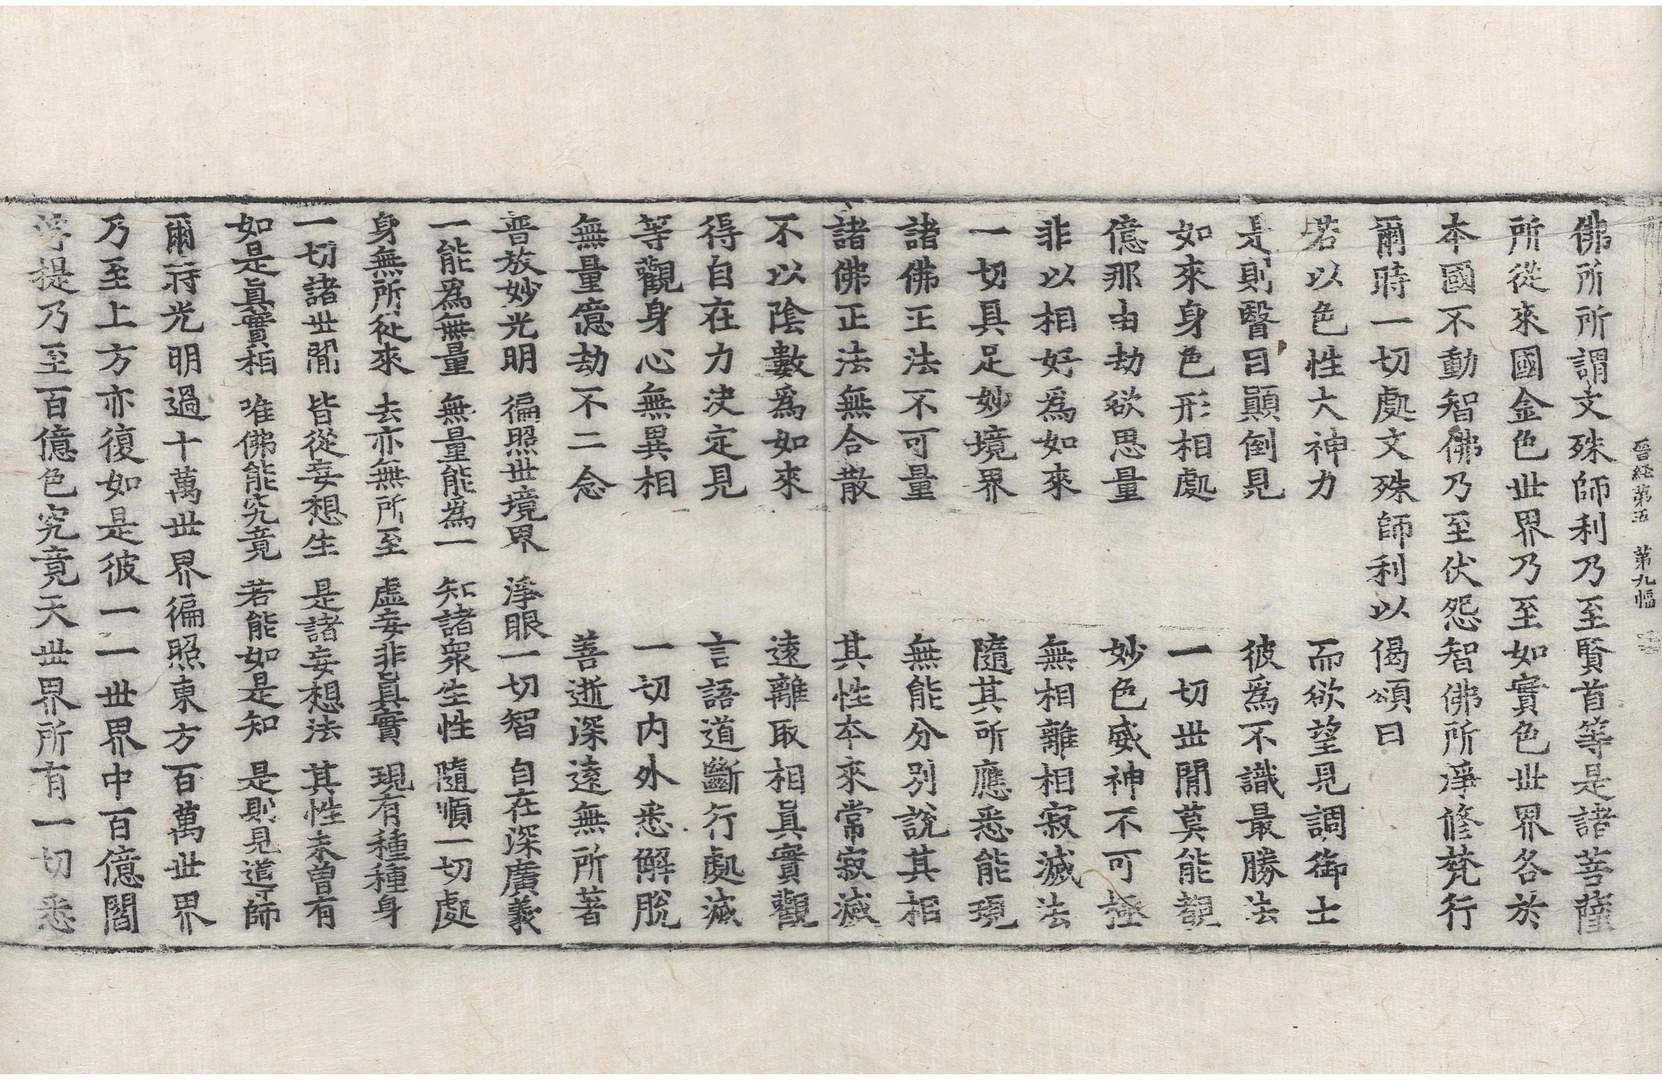 晉經第五 第九幅
佛所所謂文殊師利乃至賢首等是諸菩薩
所從來國金色世界乃至如實色世界各於
本國不動智佛乃至伏怨智佛所淨修梵行
爾時一切處文殊師利以偈頌曰
若以色性大神力 而欲望見調御士
是則瞖目顛倒見 彼爲不識最勝法
如來身色形相處 一切世閒莫能覩
億那由劫欲思量 妙色威神不可極
非以相好爲如來 無相離相寂滅法
一切具足妙境界 隨其所應悉能現
諸佛正法不可量 無能分別說其相
諸佛正法無合散 其性本來常寂滅
不以陰數爲如來 遠離取相眞實觀
得自在力決定見 言語道斷行處滅
等觀身心無異相 一切內外悉解脫
無量億劫不二念 善逝深遠無所著
普放妙光明 徧照世境界 淨眼一切智 自在深廣義
一能爲無量 無量能爲一 知諸衆生性 隨順一切處
身無所從來 去亦無所至 虛妄非眞實 現有種種身
一切諸世閒 皆從妄想生 是諸妄想法 其性未曾有
如是眞實相 唯佛能究竟 若能如是知 是則見導師
爾時光明過十萬世界徧照東方百萬世界
乃至上方亦復如是彼一一世界中百億閻
浮提乃至百億色究竟天世界所有一切悉